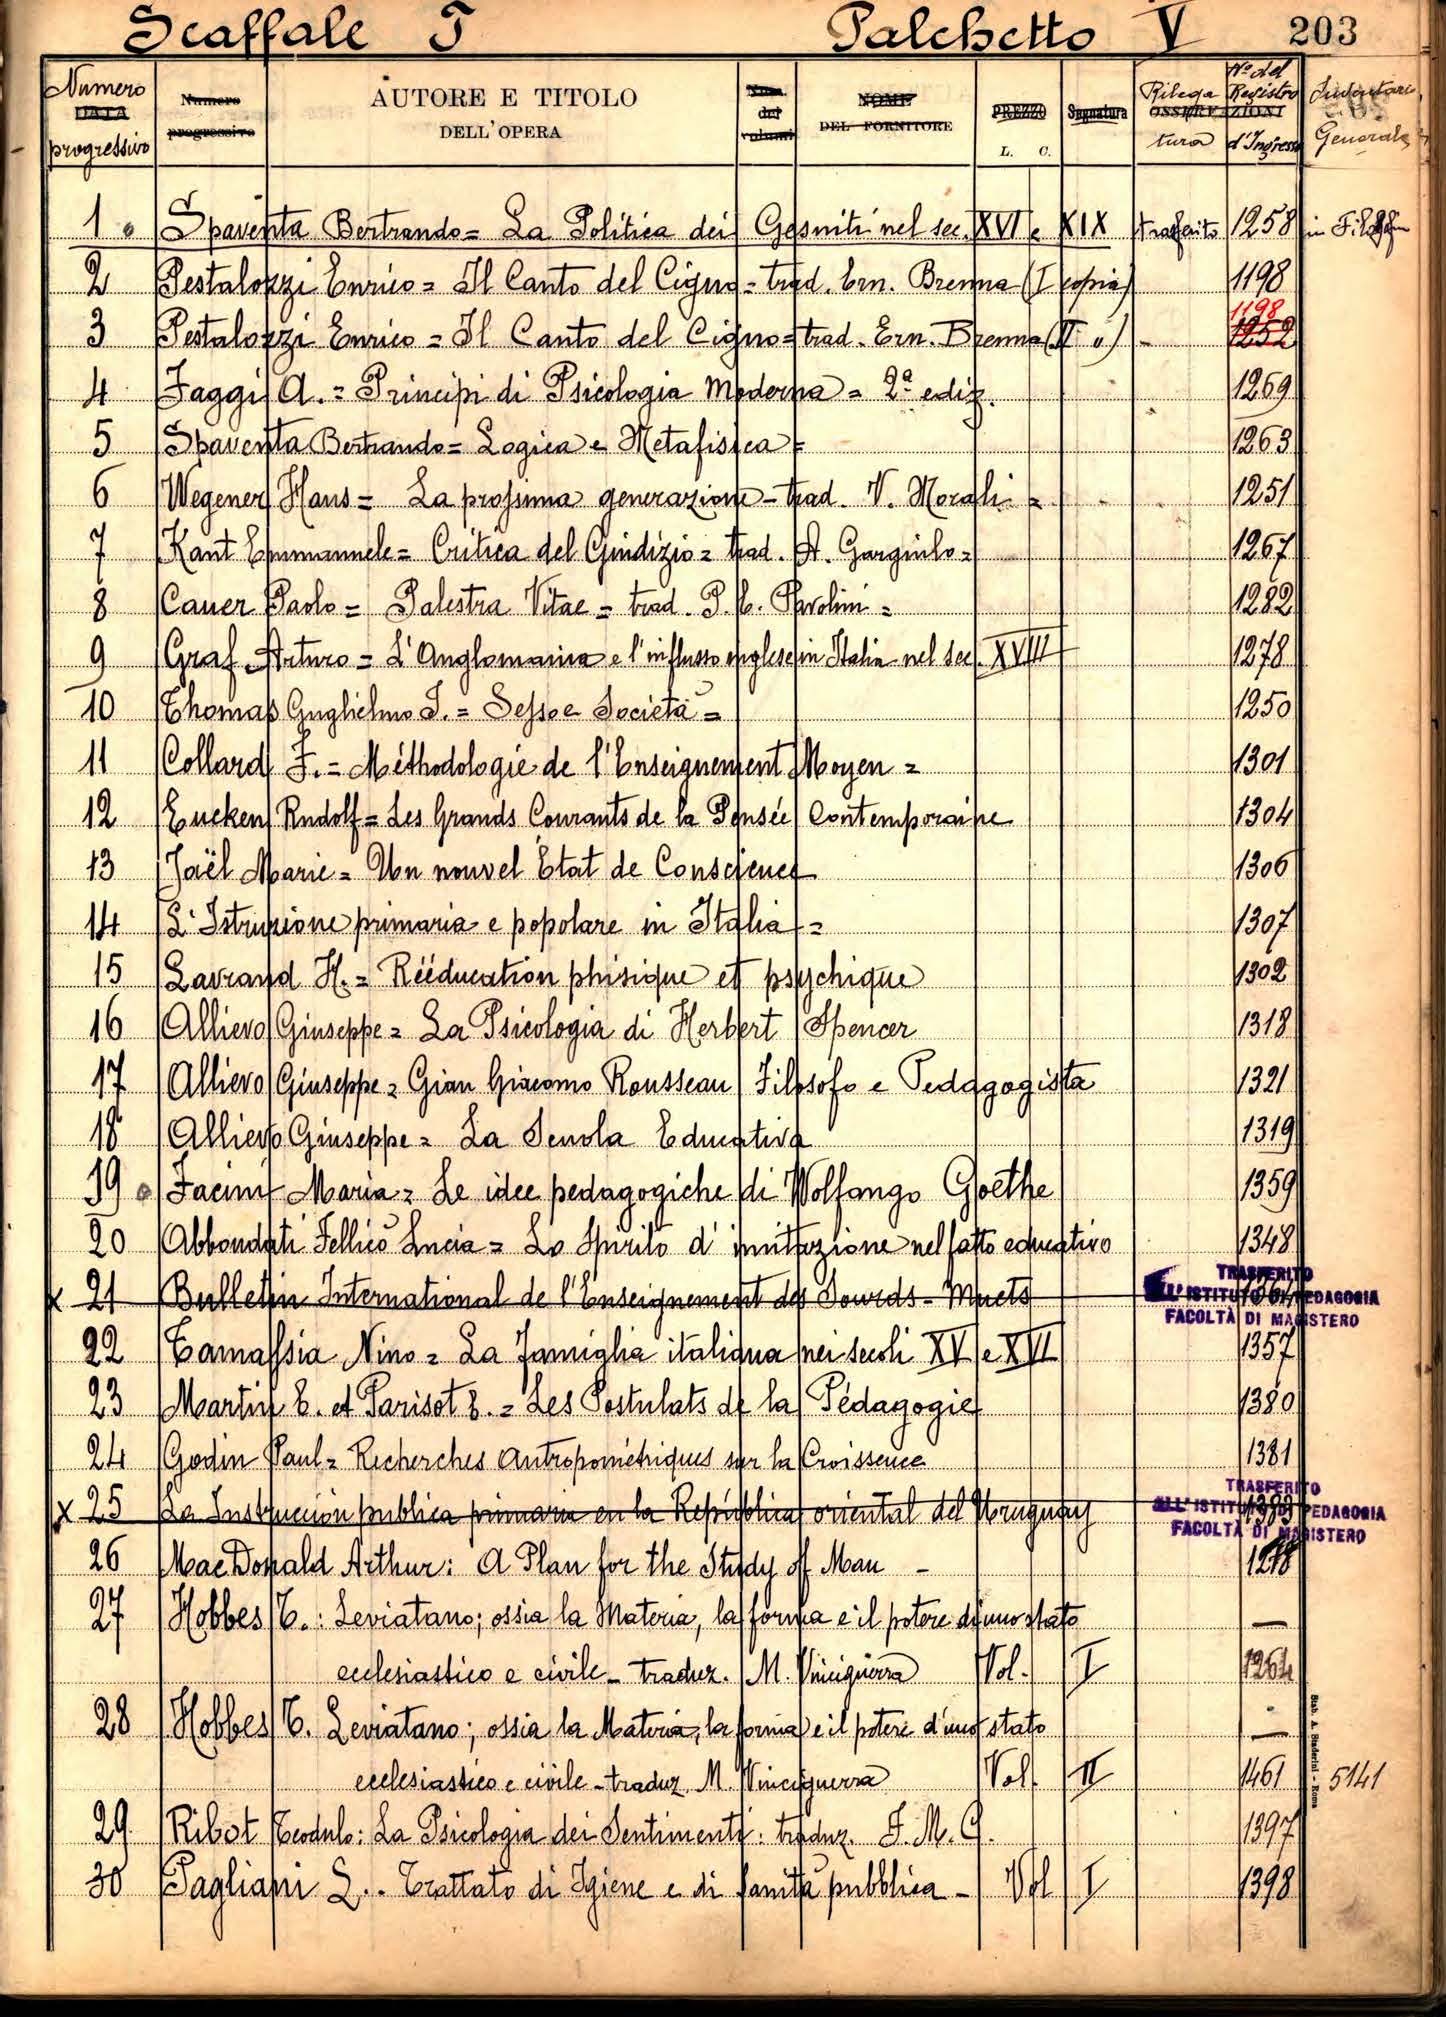 Scaffale T Palchetto V 203
Numero DATA progressivo
Numero progressivo
AUTORE E TITOLO
DELL'OPERA
Num. dei volumi
NOME
DEL FORNITORE
PREZZO
L. C.
Segnatura
Rilega OSSERVAZIONI tura
N.º del Registro d'Ingresso
Inventario Generale
1 Spaventa Bertrando = La Politica dei Gesuiti nel sec. XVI e XIX trasferito 1258 in Filosofia
2 Pestalozzi Enrico = Il Canto del Cigno = trad. Ern. Brenna (I copia) 1198
3 Pestalozzi Enrico = Il Canto del Cigno = trad. Ern. Brenna (II ") - 1198 1252
4 Faggi A. = Principi di Psicologia Moderna = 2ª ediz. 1269
5 Spaventa Bertrando = Logica e Metafisica = 1263
6 Wegener Hans = La prossima generazione - trad. V. Morali = 1251
7 Kant Emmanuele = Critica del Giudizio = trad. A. Gargiulo = 1267
8 Cauer Paolo = Palestra Vitae = trad. P. E. Pavolini = 1282
9 Graf Arturo = L'Anglomania e l'influsso inglese in Italia nel sec. XVIII 1278
10 Thomas Guglielmo I. = Sesso e Società = 1250
11 Collard F. = Méthodologie de l'Enseignement Moyen = 1301
12 Eucken Rudolf = Les Grands Courants de la Pensée Contemporaine 1304
13 Jaël Marie = Un nouvel État de Conscience 1306
14 L'Istruzione primaria e popolare in Italia = 1307
15 Lavrand H. = Rééducation phisique et psychique 1302
16 Allievo Giuseppe = La Psicologia di Herbert Spencer 1318
17 Allievo Giuseppe = Gian Giacomo Rousseau Filosofo e Pedagogista 1321
18 Allievo Giuseppe = La Scuola Educativa 1319
19 Facini Maria = Le idee pedagogiche di Wolfango Goethe 1359
20 Abbondati Fellicò Lucia = Lo Spirito d'imitazione nel fatto educativo 1348
x 21 Bulletin International de l'Enseignement des Sourds-Muets 1364
TRASFERITO
ALL'ISTITUTO DI PEDAGOGIA
FACOLTÀ DI MAGISTERO
22 Tamassia Nino = La famiglia italiana nei secoli XV e XVI 1357
23 Martin E. et Parisot E. = Les Postulats de la Pédagogie 1380
24 Godin Paul = Recherches Antropométriques sur la Croissence 1381
x 25 La Instrucción publica primaria en la República oriental del Uruguay 1383
TRASFERITO
ALL'ISTITUTO DI PEDAGOGIA
FACOLTÀ DI MAGISTERO
26 MacDonald Arthur: A Plan for the Study of Man - 1278
27 Hobbes T. : Leviatano; ossia la Materia, la forma e il potere di uno stato —
ecclesiastico e civile - traduz. M. Vinciguerra Vol. I 1264
28 Hobbes T. Leviatano; ossia la Materia, la forma e il potere d'uno stato —
ecclesiastico e civile - traduz. M. Vinciguerra Vol. II 1461 5141
29 Ribot Teodulo: La Psicologia dei Sentimenti: traduz. F. M. G. 1397
30 Pagliani L. . Trattato di Igiene e di Sanità pubblica - Vol I 1398
Stab. A. Staderini - Roma